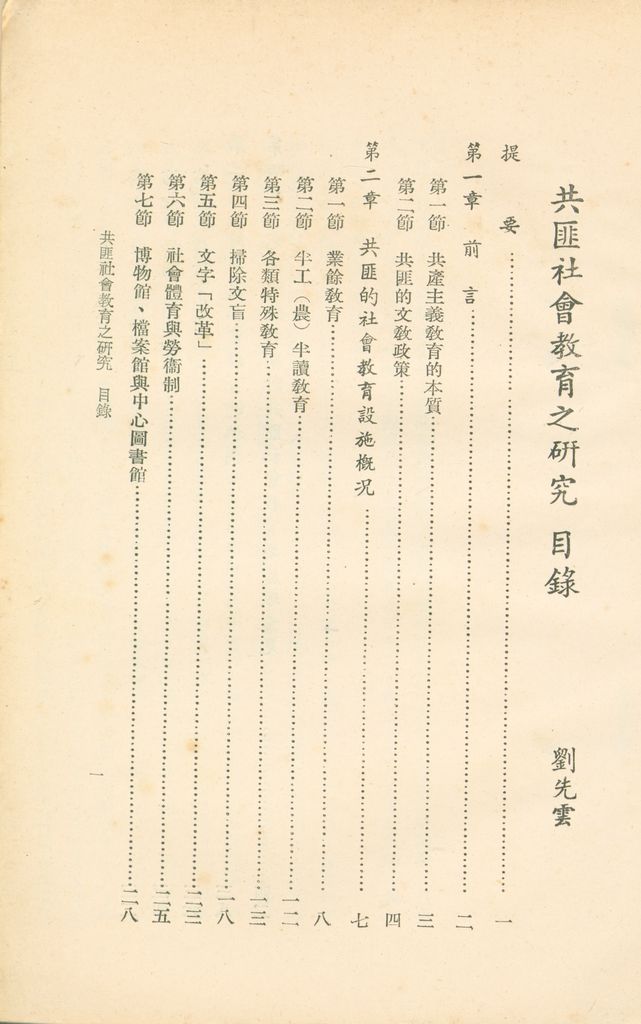 共匪社會教育之研究 目錄
劉先雲
提要……一
第一章 前言……二
第一節 共產主義教育的本質……三
第二節 共匪的文教政策……四
第二章 共匪的社會教育設施概況……七
第一節 業餘教育……八
第二節 半工(農)半讀教育……一二
第三節 各類特殊教育……一三
第四節 掃除文盲……一八
第五節 文字「改革」……二三
第六節 社會體育與勞衞制……二五
第七節 博物館、檔案館與中心圖書館……二八
共匪社會教育之研究 目錄
一